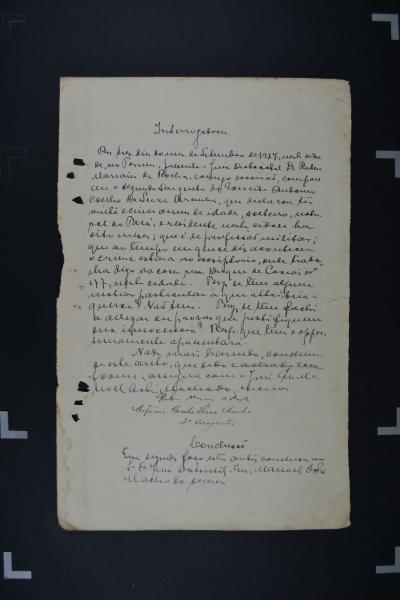 Interrogatorio
Aos tres dias do mez de Setembro de 1927, nesta cida
de, no Forum, presente o Juiz Districtal Dr. Ruben
Mariath da Rocha, comigo escrivão, compare
ceu o segundo sargento do Exercito Antonio
Coelho da Silva, que declarou ter
vinte e cinco annos de idade, solteiro, natu
ral do Pará, e residente nesta cidade ha
oito mezes; que é de profissão militar;
que ao tempo em que se diz acontecer
o crime estava no escriptorio, onde traba
lha digo na casa rua Duque de Caxias nº
177, nesta cidade. Perg. se tem algum
motivo particular a que attribuir a
queixa? Não tem. Perg. se tem factos
a allegar ou provas que justifiquem
sua innocencia? Resp. que tem e oppor
tunamente apresentará.
Nada mais havendo, concluiu-
se este auto, que lido e achado con
forme, assigna com o Juiz. Eu, Ma
noel Machado, escrivão
Coelho Silva
2º Sargento
Conclusão
Em seguida faço estes autos conclusos ao
S. Dr. Juiz Districtal. Eu, Manoel
Machado, escrivão